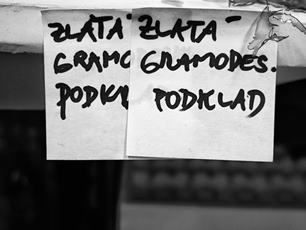 ZLATÁ
GRAMO
PODK
ZLATÁ
GRAMODES.
PODKLAD